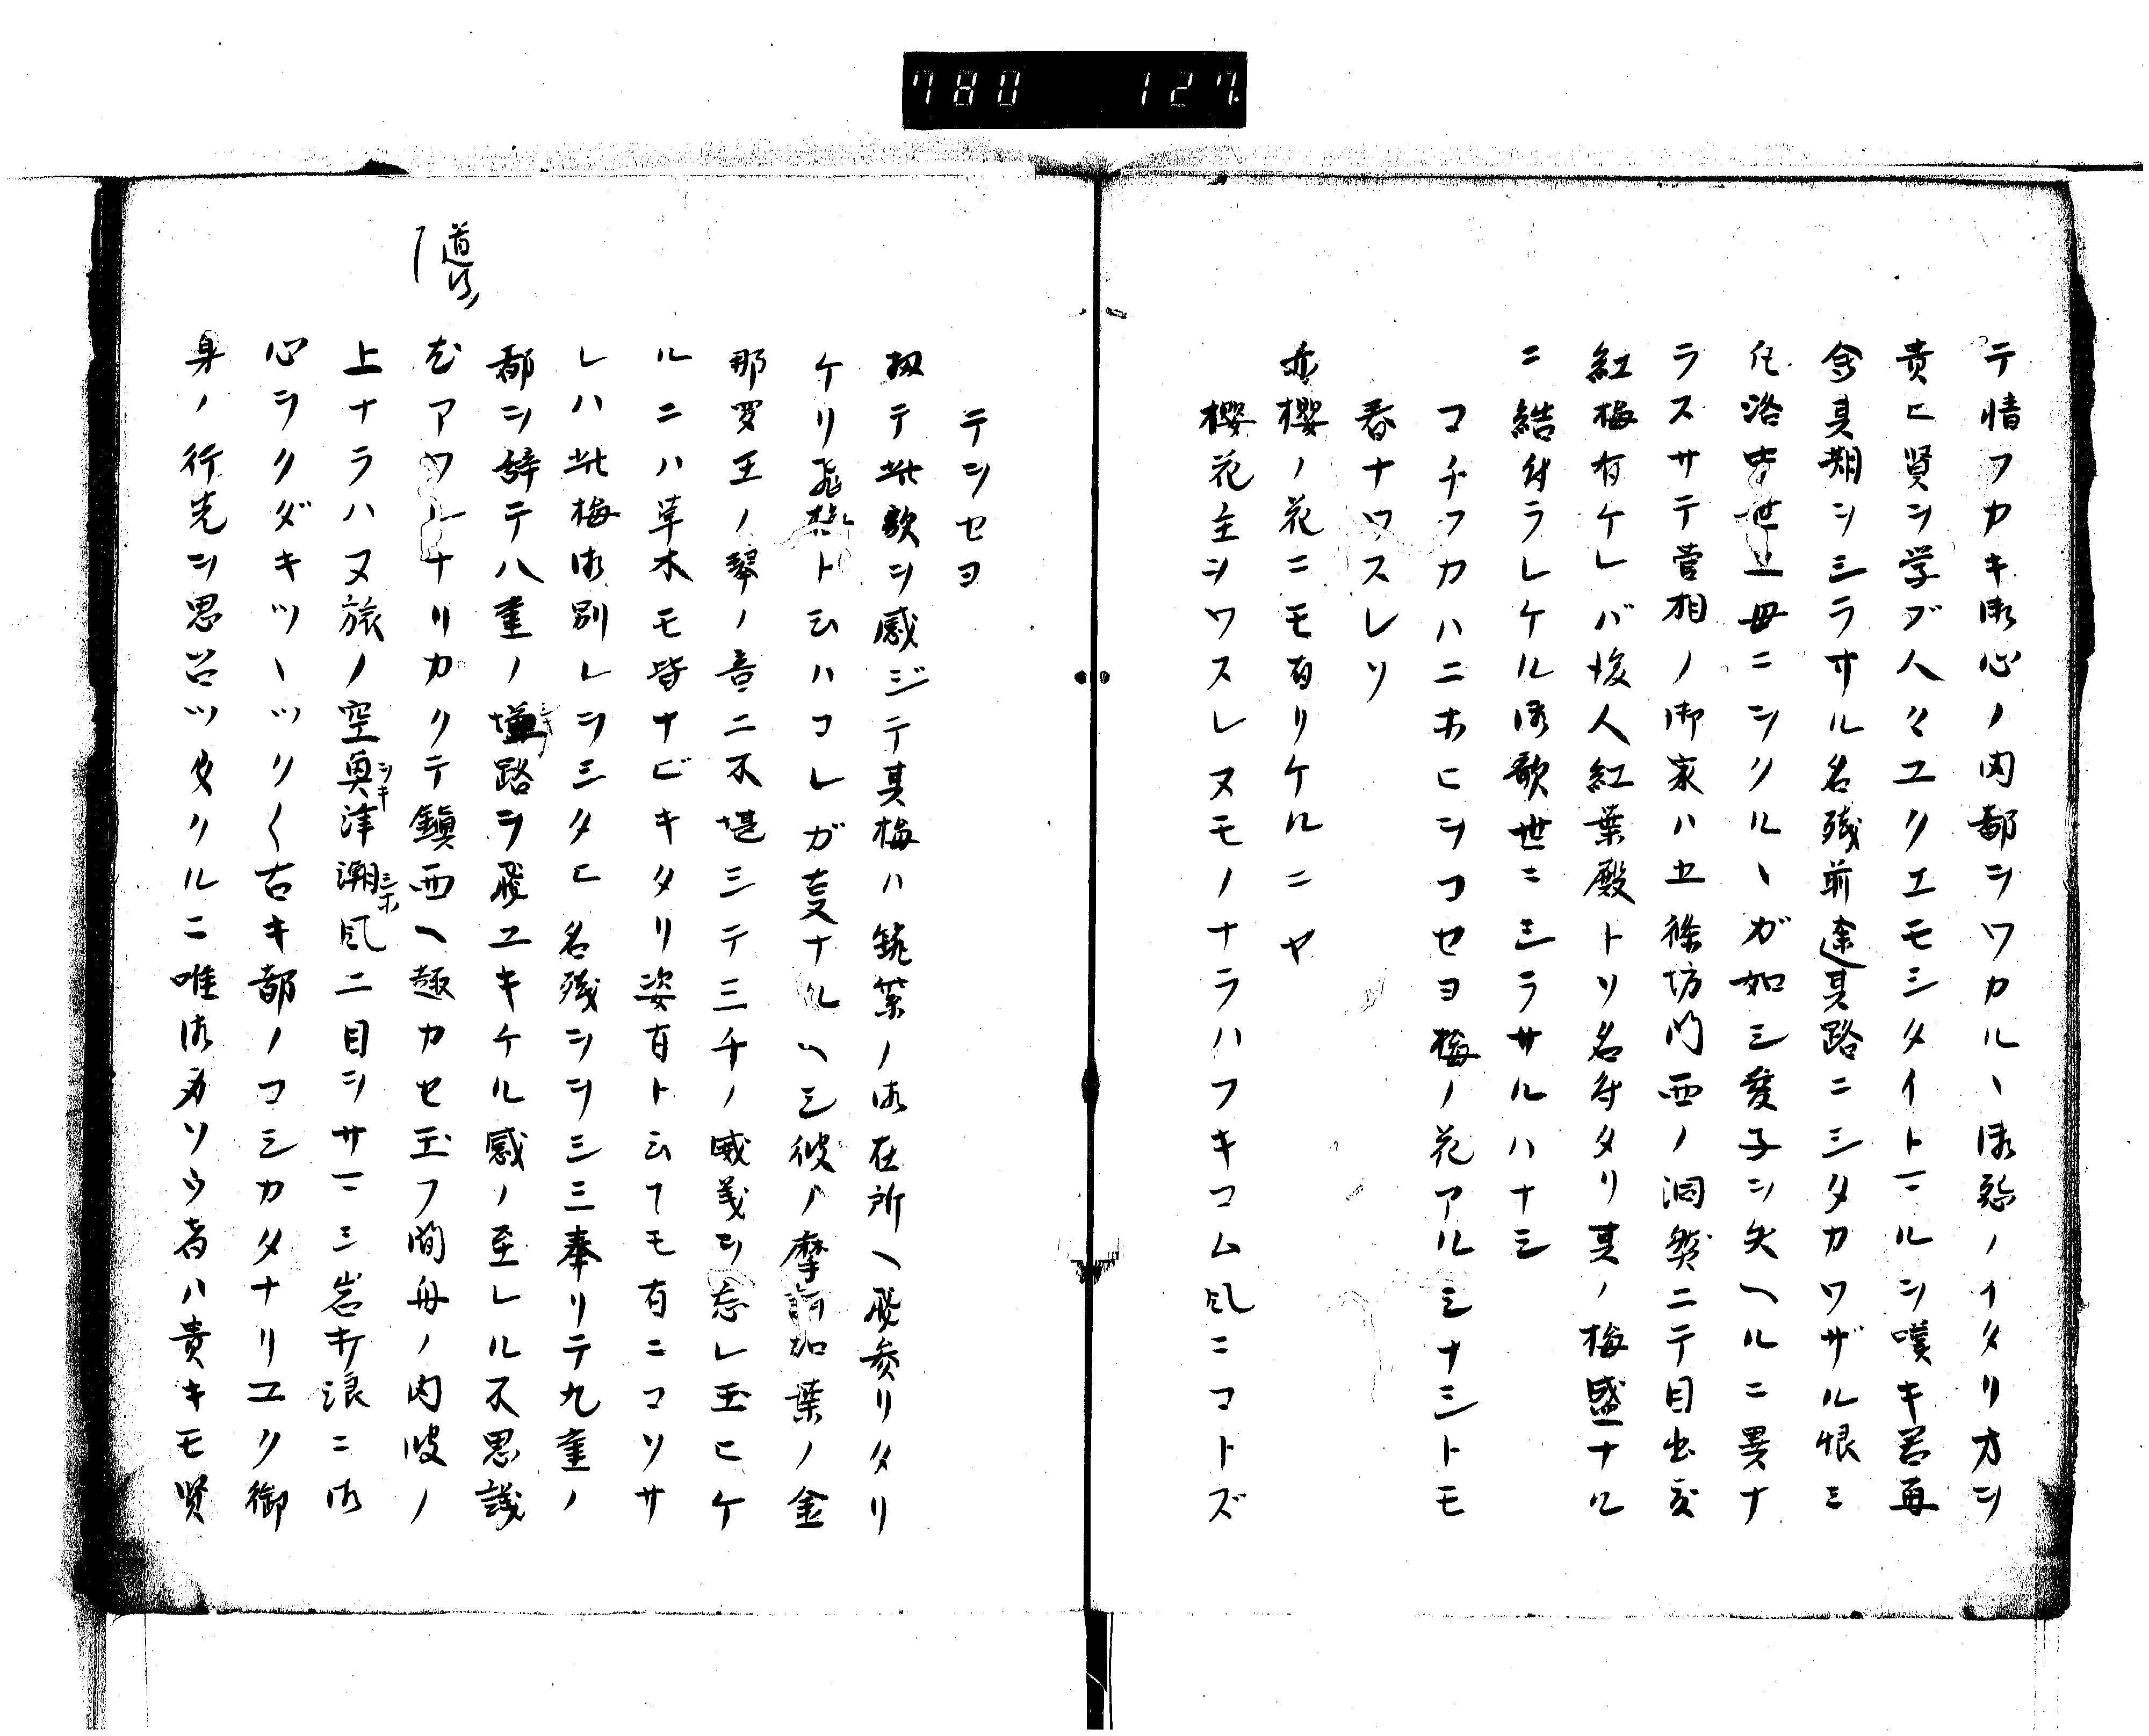 780 127
テ情フカキ御心ノ内都ヲワカルヽ御愁ノイタリオシ
貴ヒ賢ヲ学ブ人々ユクエモシタイトマルヲ嘆キ若再
会其期ヲシラサル名残前途其路ニシタカワザル恨ミ
凡洛中世上母ニヲクルヽガ如シ愛子ヲ失ヘルニ異ナ
ラスサテ菅相ノ御家ハ五条坊門西ノ洞院ニテ目出度
紅梅有ケレバ後人紅葉殿トソ名付タリ其ノ梅盛ナル
ニ結付ラレケル御歌世ニシラサルハナシ
コチフカハニホヒヲコセヨ梅ノ花アルシナシトモ
春ナワスレソ
亦櫻ノ花ニモ有リケルニヤ
櫻花主ヲワスレヌモノナラハフキコム風ニコトズ
テヲセヨ
扨テ此歌ヲ感ジテ其梅ハ筑紫ノ御在所ヘ飛参リタリ
ケリ飛梅ト云ハコレガ㕝ナルヘシ彼ノ摩訶加葉ノ金
那羅王ノ琴ノ音ニ不堪シテ三千ノ威義ヲ忘レ玉ヒケ
ルニハ草木モ皆ナビキタリ姿有ト云フモ有ニコソサ
レハ此梅御別レヲシタヒ名残ヲヲシミ奉リテ九重ノ
都ヲ辞テ八重ノ塩路ヲ飛ユキケル感ノ至レル不思議
也アワレナリカクテ鎮西ヘ趣カセ玉フ間舟ノ内波ノ
道行
上ナラハヌ旅ノ空奥津潮風ニ目ヲサマシ岩打浪ニ御
ヲキ
シホ
心ヲクダキツヽツク〱古キ都ノコシカタナリユク御
身ノ行先ヲ思召ツヽクルニ唯御身ソウ者ハ貴キモ賢